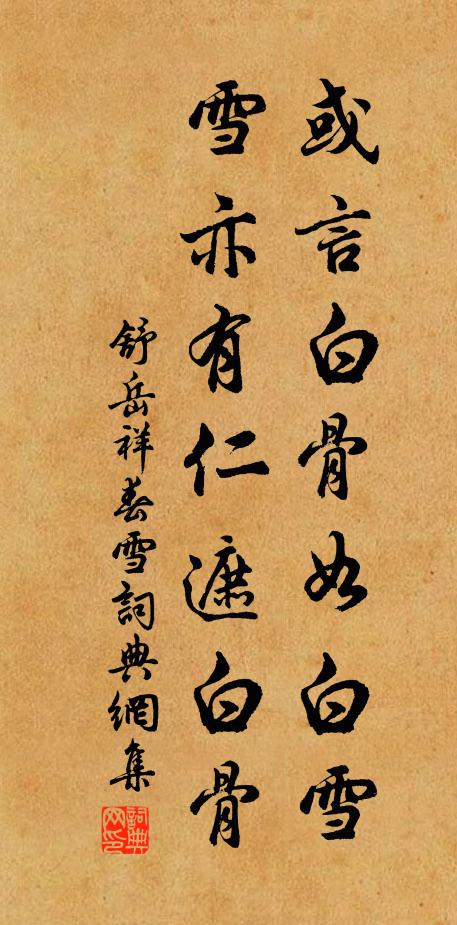 或言白骨如白雪
雪亦有仁遮白骨
舒岳祥春雪詞典網集
詞典网印